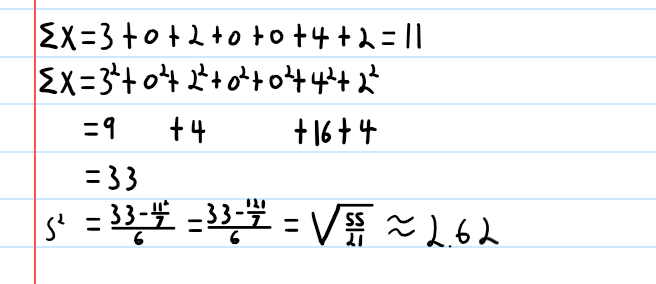 ΣX=3+0+2+0+0+4+2=11
ΣX=3²+0²+2²+0²+0²+4²+2²
=9 +4 +16+4
=33
s² = (33-11²/7)/6 = (33-121/7)/6 = √(55/21) ≈ 2.62